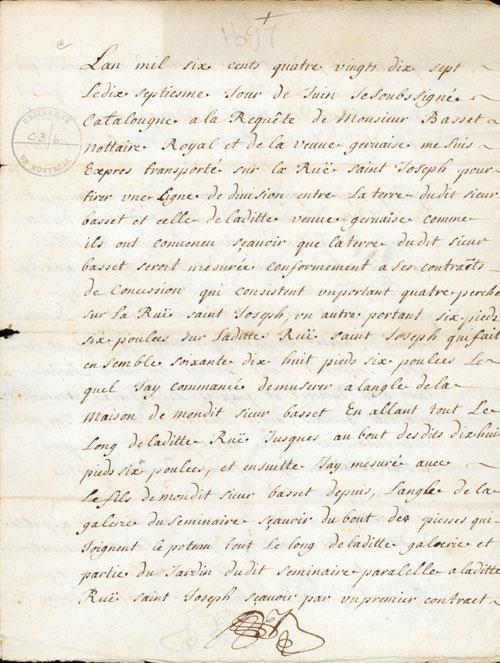 1697
UNIVERSITÉ
C3/6
DE MONTRÉAL
Lan mil six cents quatre vingts dix sept
Ledix septiesme Jour de Juin Jesoubsigné
Catalougne a la Requête de Monsieur Basset
nottaire Royal et de la veuue geruaise me suis
Expres transporté sur la Ruë saint Joseph pour
tirer vne Ligne de diuision entre La terre dudit sieur
basset et celle deladitte veuue geruaise comme
ils ont conueneu sçauoir que laterre dudit sieur
basset seroit mesurée conformement a ses contraits
de Concession qui consistent vnportant quatre perche
sur La Ruë saint Joseph, vn autre portant six pieds
six poulces sur Laditte Ruë saint Joseph quifait
en semble soixante dix huit pieds six poulces Le
quel Jay commancé demusérer a langle de la
Maison de mondit sieur basset En allant tout Le
Long de laditte Ruë Jusques au bout desdits dixhuit
pieds six poulces, et ensuitte Jay mesuré auec
Le fils demondit sieur basset depuis, Langle de la
galerie du seminaire sçauoir du bout des pierres qui
Joignent le tout Le long deladitte galerie et
partie du Jardin dudit seminaire paralelle a laditte
Ruë saint Joseph sçauoir par vn premier contract